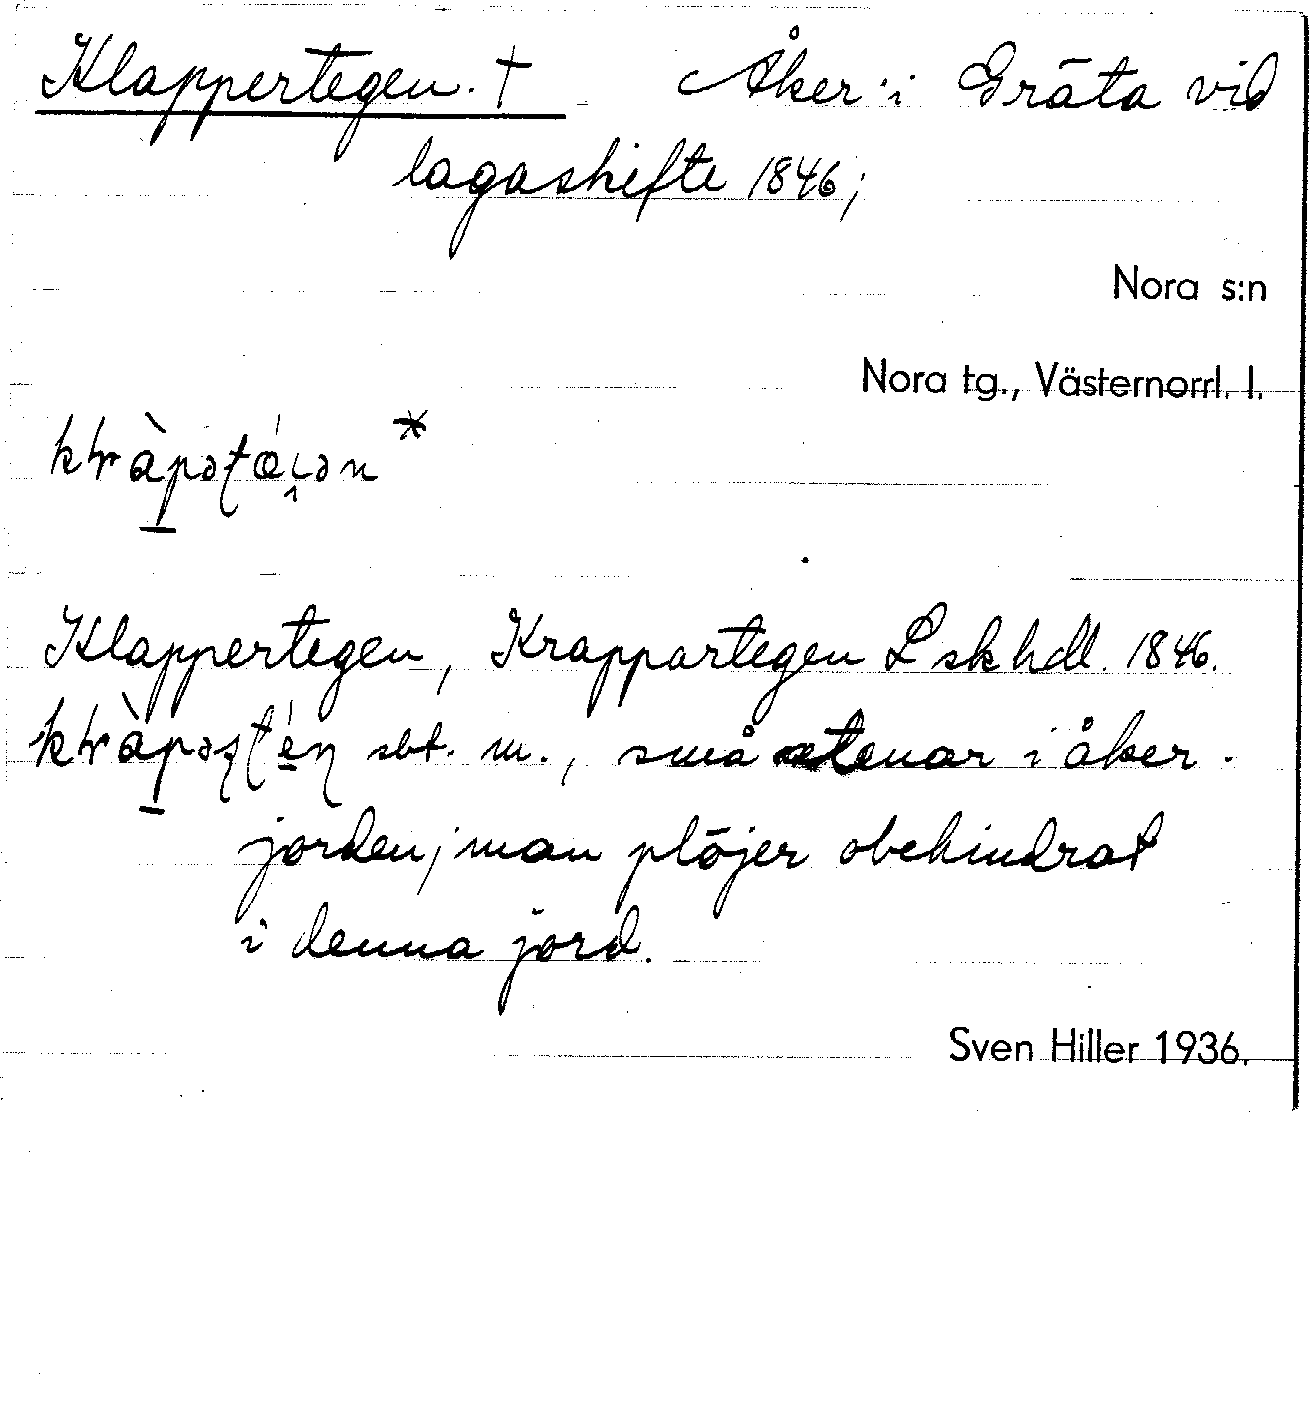 Klappertegen. † Åker i Gräta vid
lagashifte 1846;
Nora s:n
Nora tg., Västernorrl. l.
Klappertegen, Krappartegen L skhdl. 1846.
sbt. m., små stenar i åker-
jorden; man plöjer obehindrat
i denna jord.
Sven Hiller 1936.